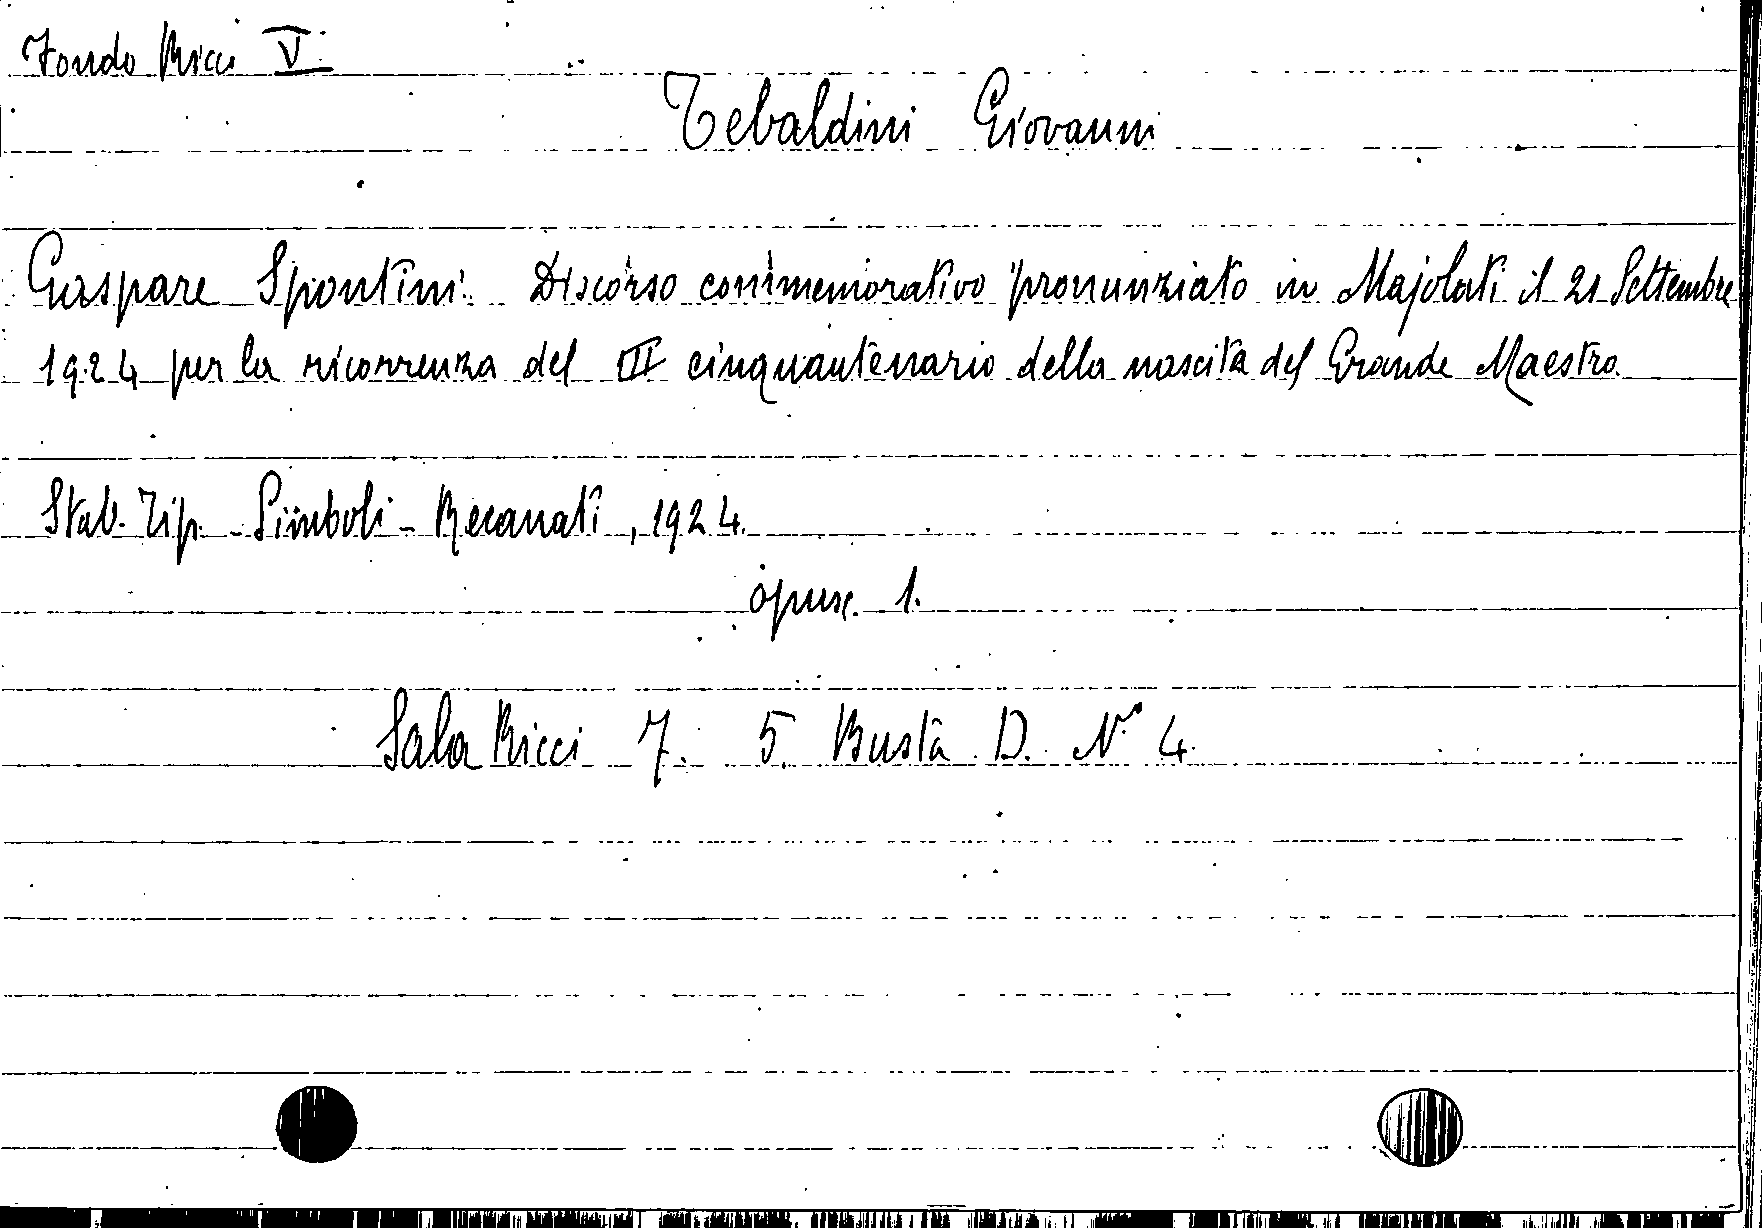 Fondo Ricci V
Tebaldini Giovanni
Gaspare Spontini. Discorso commemorativo pronunziato in Majolati il 21 Settembre
1924 per la ricorrenza del III cinquantenario della nascita del Grande Maestro.
Stab. Tip. Simboli - Recanati, 1924.
opusc. 1.
Sala Ricci 7. 5. Busta D. N° 4.